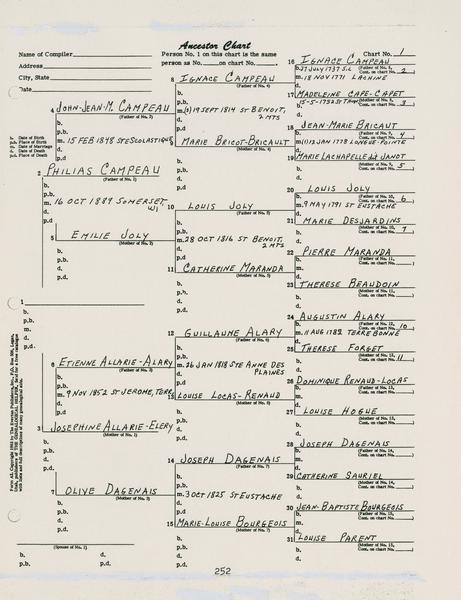 Ancestor Chart
Name of Compiler
Address
City, State
Date
Person No. 1 on this chart is the same
person as No. on chart No.
Chart No. 1
16 IGNACE CAMPEAU
(Father of No. 8,
Cont. on chart No. 2)
m. 18 NOV 1771 LACHINE
8 IGNACE CAMPEAU
(Father of No. 4)
b.
p.b.
m. (2) 19 SEPT 1814 ST BENOIT,
2 MTS
d.
p.d.
17 MADELEINE CAPE-CAPET
(Mother of No. 8,
Cont. on chart No. 3)
4 JOHN-JEAN-M. CAMPEAU
(Father of No. 2)
b.
p.b.
m. 15 FEB 1848 STE SCOLASTIQUE
d.
p.d.
b. Date of Birth
p.b. Place of Birth
m. Date of Marriage
d. Date of Death
p.d. Place of Death
18 JEAN-MARIE BRICAUT
(Father of No. 9,
Cont. on chart No. 4)
m. (1) 12 JAN 1778 LONGUE-POINTE
9 MARIE BRICOT-BRICAULT
(Mother of No. 4)
19 MARIE LACHAPELLE dit JANOT
(Mother of No. 9,
Cont. on chart No. 5)
2 PHILIAS CAMPEAU
(Father of No. 1)
b.
p.b.
m. 16 OCT 1889 SOMERSET,
WI
d.
p.d.
20 LOUIS JOLY
(Father of No. 10,
Cont. on chart No. 6)
m. 9 MAY 1791 ST EUSTACHE
10 LOUIS JOLY
(Father of No. 5)
b.
p.b.
m. 28 OCT 1816 ST BENOIT,
2 MTS
d.
p.d.
21 MARIE DESJARDINS
(Mother of No. 10,
Cont. on chart No. 7)
5 EMILIE JOLY
(Mother of No. 2)
b.
p.b.
d.
p.d.
22 PIERRE MARANDA
(Father of No. 11,
Cont. on chart No.
11 CATHERINE MARANDA
(Mother of No. 5)
23 THERESE BEAUDOIN
(Mother of No. 11,
Cont. on chart No.
1
b.
p.b.
m.
d.
p.d.
24 AUGUSTIN ALARY
(Father of No. 12,
Cont. on chart No. 10)
m. 11 AUG 1782 TERREBONNE
12 GUILLAUME ALARY
(Father of No. 6)
b.
p.b.
m. 26 JAN 1818 STE ANNE DES
PLAINES
d.
p.d.
25 THERESE FORGET
(Mother of No. 12,
Cont. on chart No. 11)
6 ETIENNE ALLARIE-ALARY
(Father of No. 3)
b.
p.b.
m. 9 NOV 1852 ST JEROME, TERR
d.
p.d.
26 DOMINIQUE RENAUD-LOCAS
(Father of No. 13,
Cont. on chart No.
13 LOUISE LOCAS-RENAUD
(Mother of No. 6)
27 LOUISE HOGUE
(Mother of No. 13,
Cont. on chart No.
3 JOSEPHINE ALLARIE-ELERY
(Mother of No. 1)
b.
p.b.
d.
p.d.
28 JOSEPH DAGENAIS
(Father of No. 14,
Cont. on chart No.
14 JOSEPH DAGENAIS
(Father of No. 7)
b.
p.b.
m. 3 OCT 1825 ST EUSTACHE
d.
p.d.
29 CATHERINE SAURIEL
(Mother of No. 14,
Cont. on chart No.
7 OLIVE DAGENAIS
(Mother of No. 3)
b.
p.b.
d.
p.d.
30 JEAN-BAPTISTE BOURGEOIS
(Father of No. 15,
Cont. on chart No.
15 MARIE-LOUISE BOURGEOIS
(Mother of No. 7)
b.
p.b.
d.
p.d.
31 LOUISE PARENT
(Mother of No. 15,
Cont. on chart No.
(Spouse of No. 1)
b. d.
p.b. p.d.
252